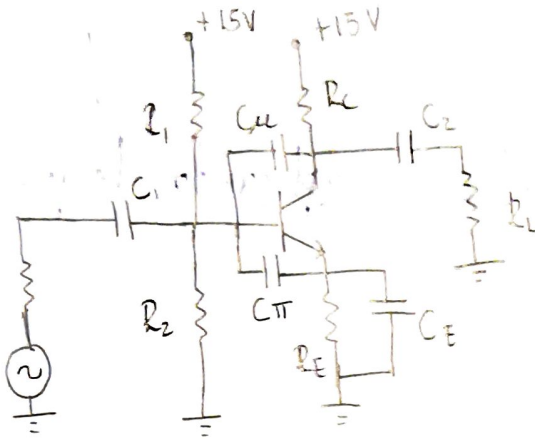 +15V +15V
R1 RC
Cμ C2
C1
RL
R2 Cπ CE
RE